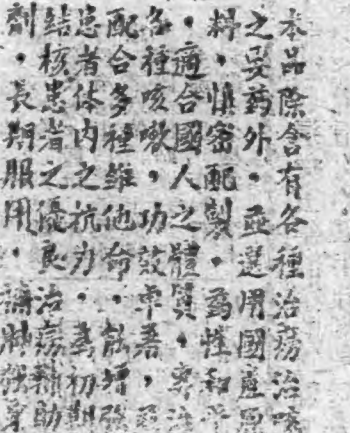 本品除含有各種治癆治咳
之吳药外。並選用國產原
料。慎密配製。药性和平
。適合國人之體質。專治
各種咳嗽,功效卓著,
配合多種維他命。能增強
患者体內之抗力。為初期
結核患者之優良治癆輔助
劑。長期服用。